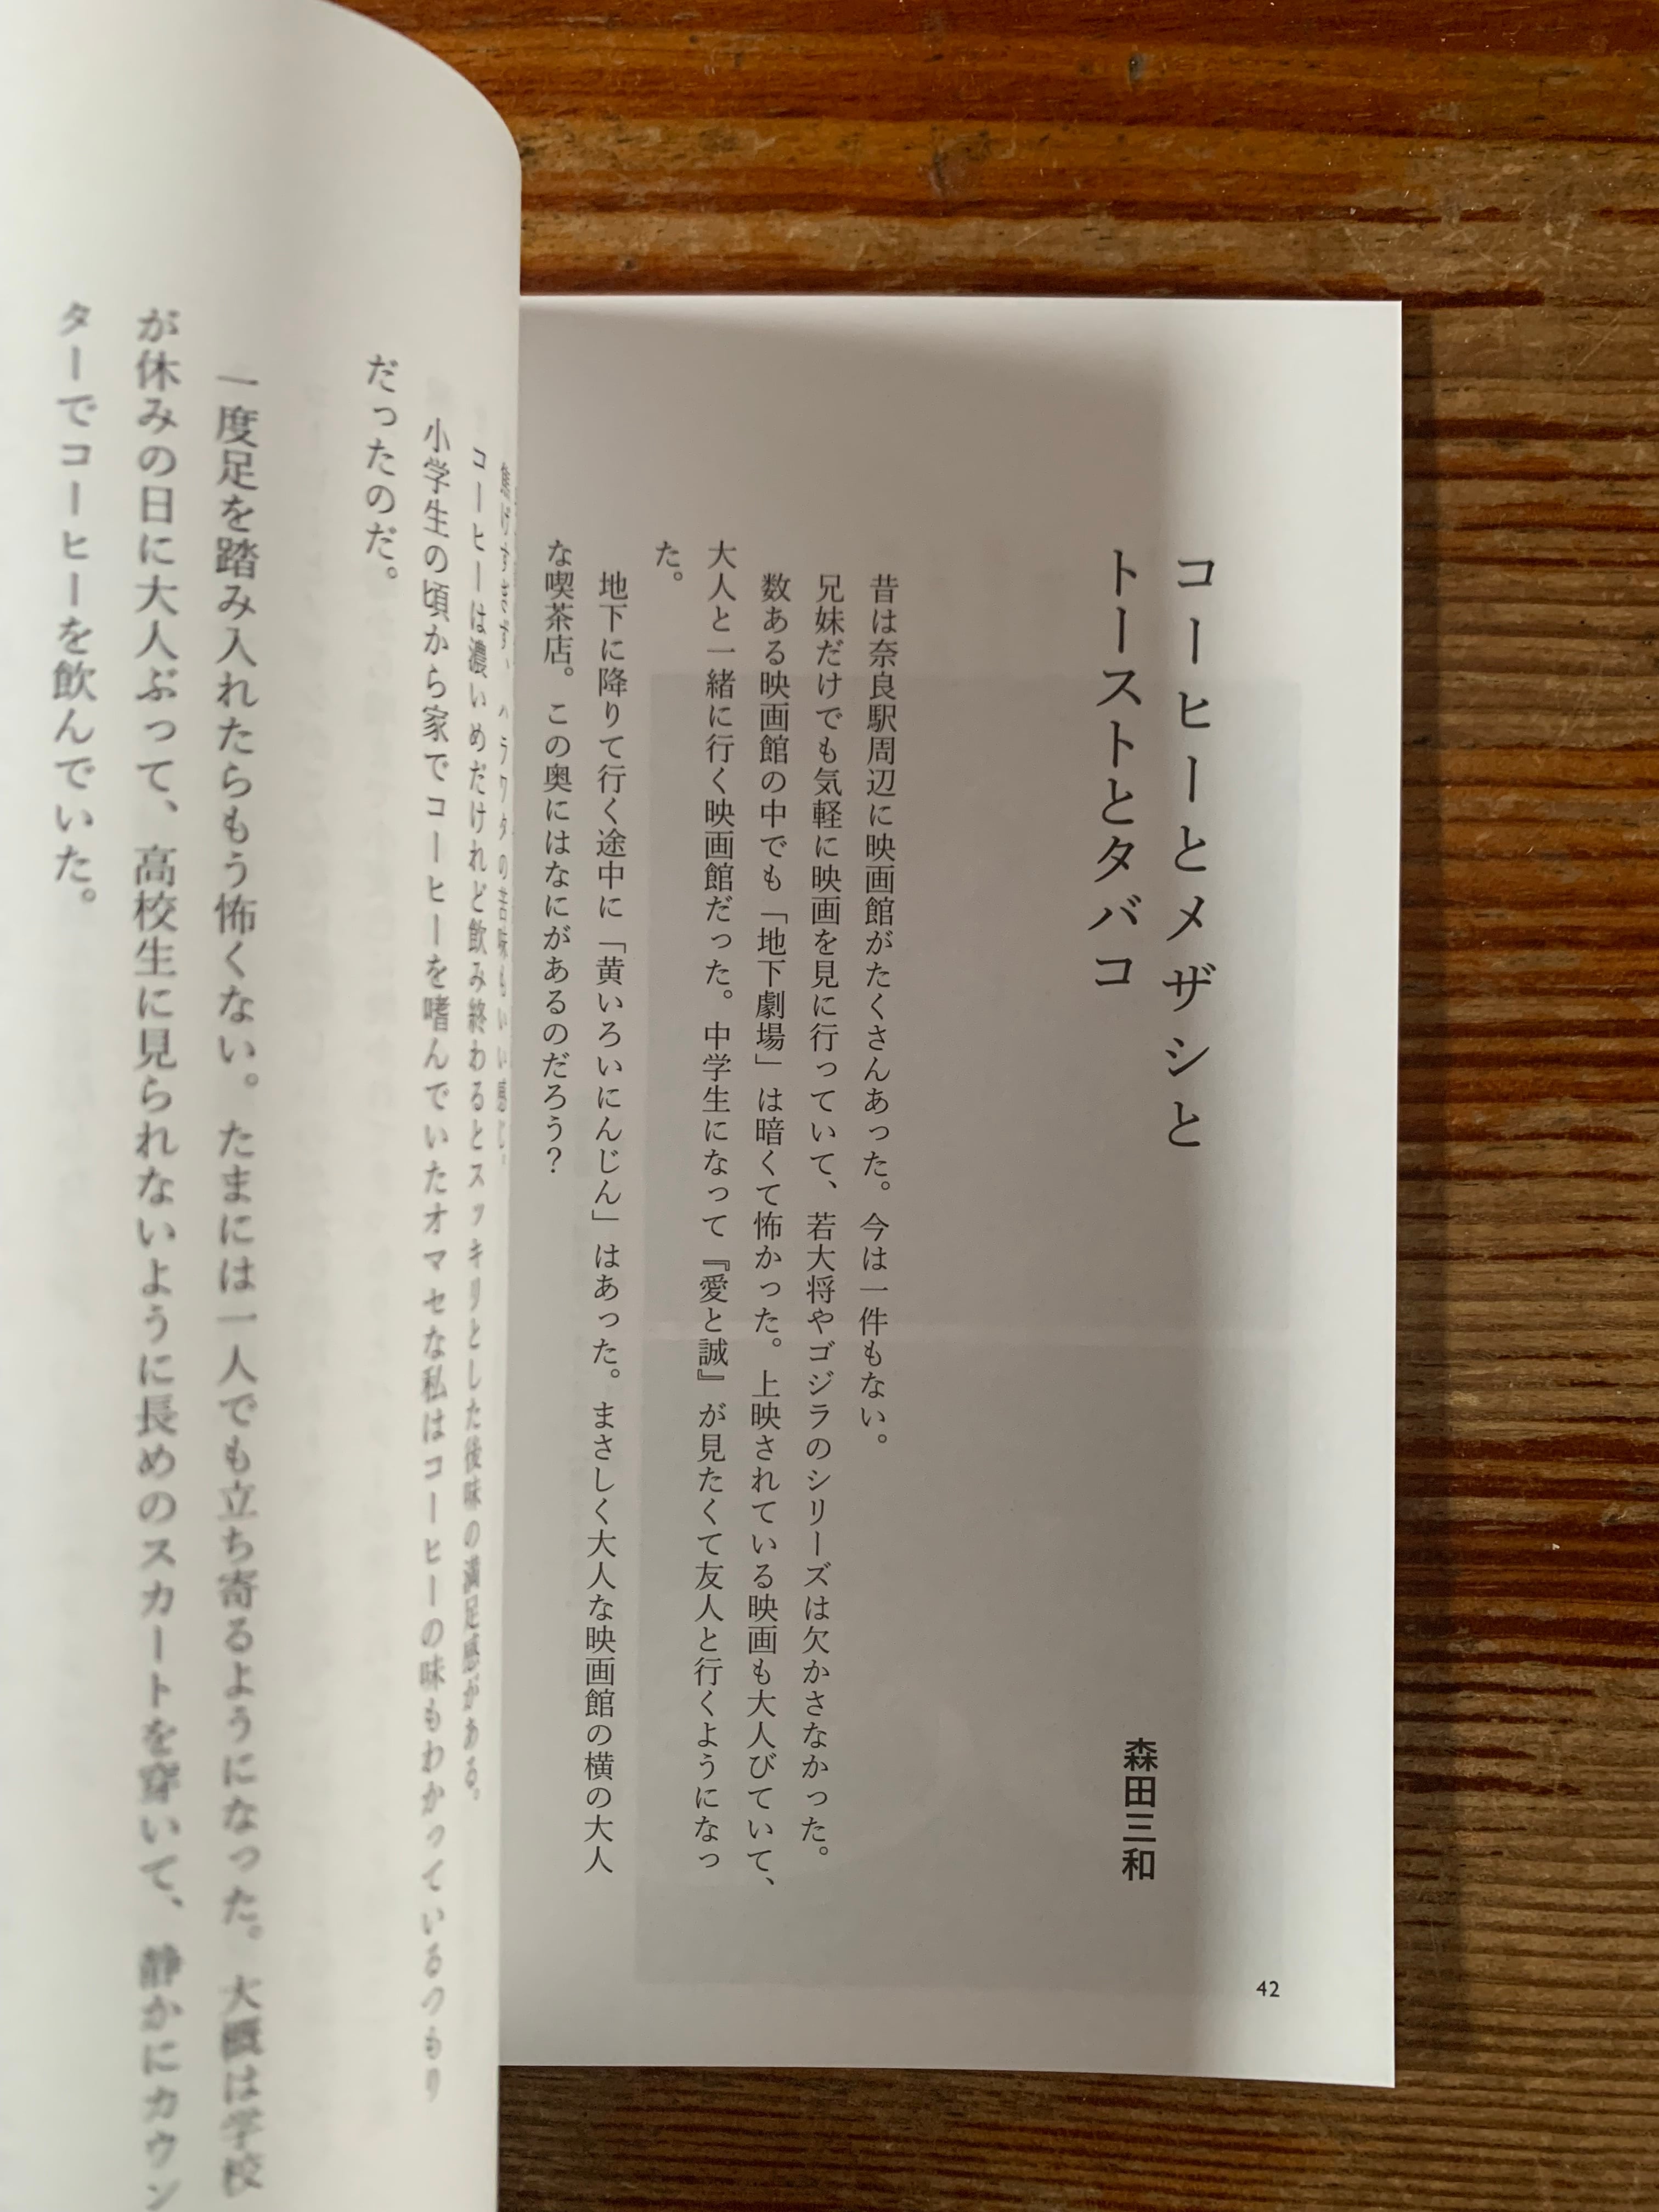 コーヒーとメザシと
トーストとタバコ
森田三和
昔は奈良駅周辺に映画館がたくさんあった。今は一件もない。
兄妹だけでも気軽に映画を見に行っていて、若大将やゴジラのシリーズは欠かさなかった。
数ある映画館の中でも「地下劇場」は暗くて怖かった。上映されている映画も大人びていて、
大人と一緒に行く映画館だった。中学生になって『愛と誠』が見たくて友人と行くようになっ
た。
地下に降りて行く途中に「黄いろいにんじん」はあった。まさしく大人な映画館の横の大人
な喫茶店。この奥にはなにがあるのだろう？
42
焦げすぎず、ハラワタの苦味もいい感じ。
コーヒーは濃いめだけれど飲み終わるとスッキリとした後味の満足感がある。
小学生の頃から家でコーヒーを嗜んでいたオマセな私はコーヒーの味もわかっているつもり
だったのだ。
一度足を踏み入れたらもう怖くない。たまには一人でも立ち寄るようになった。大概は学校
が休みの日に大人ぶって、高校生に見られないように長めのスカートを穿いて、静かにカウン
ターでコーヒーを飲んでいた。